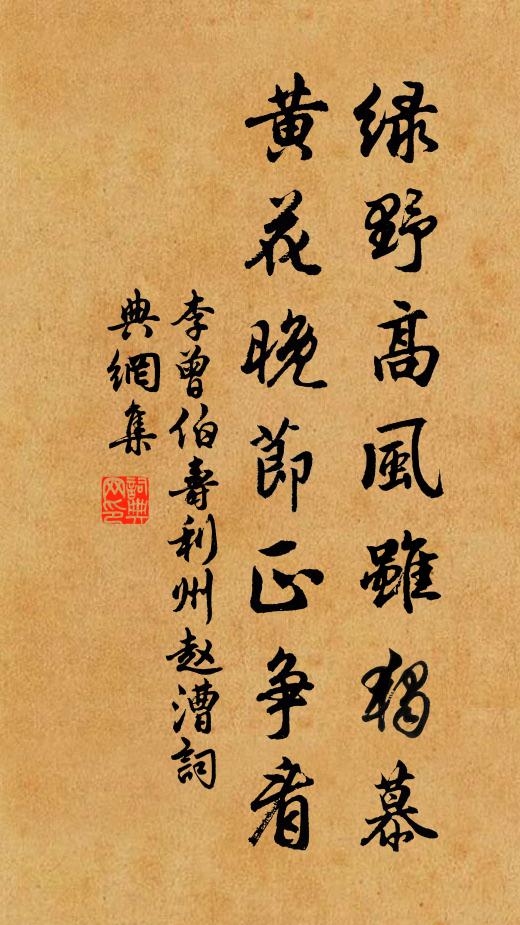 绿野高風雖獨慕
黄花晚節正争看
李曾伯壽利州赵漕詞
典網集
詞典網印